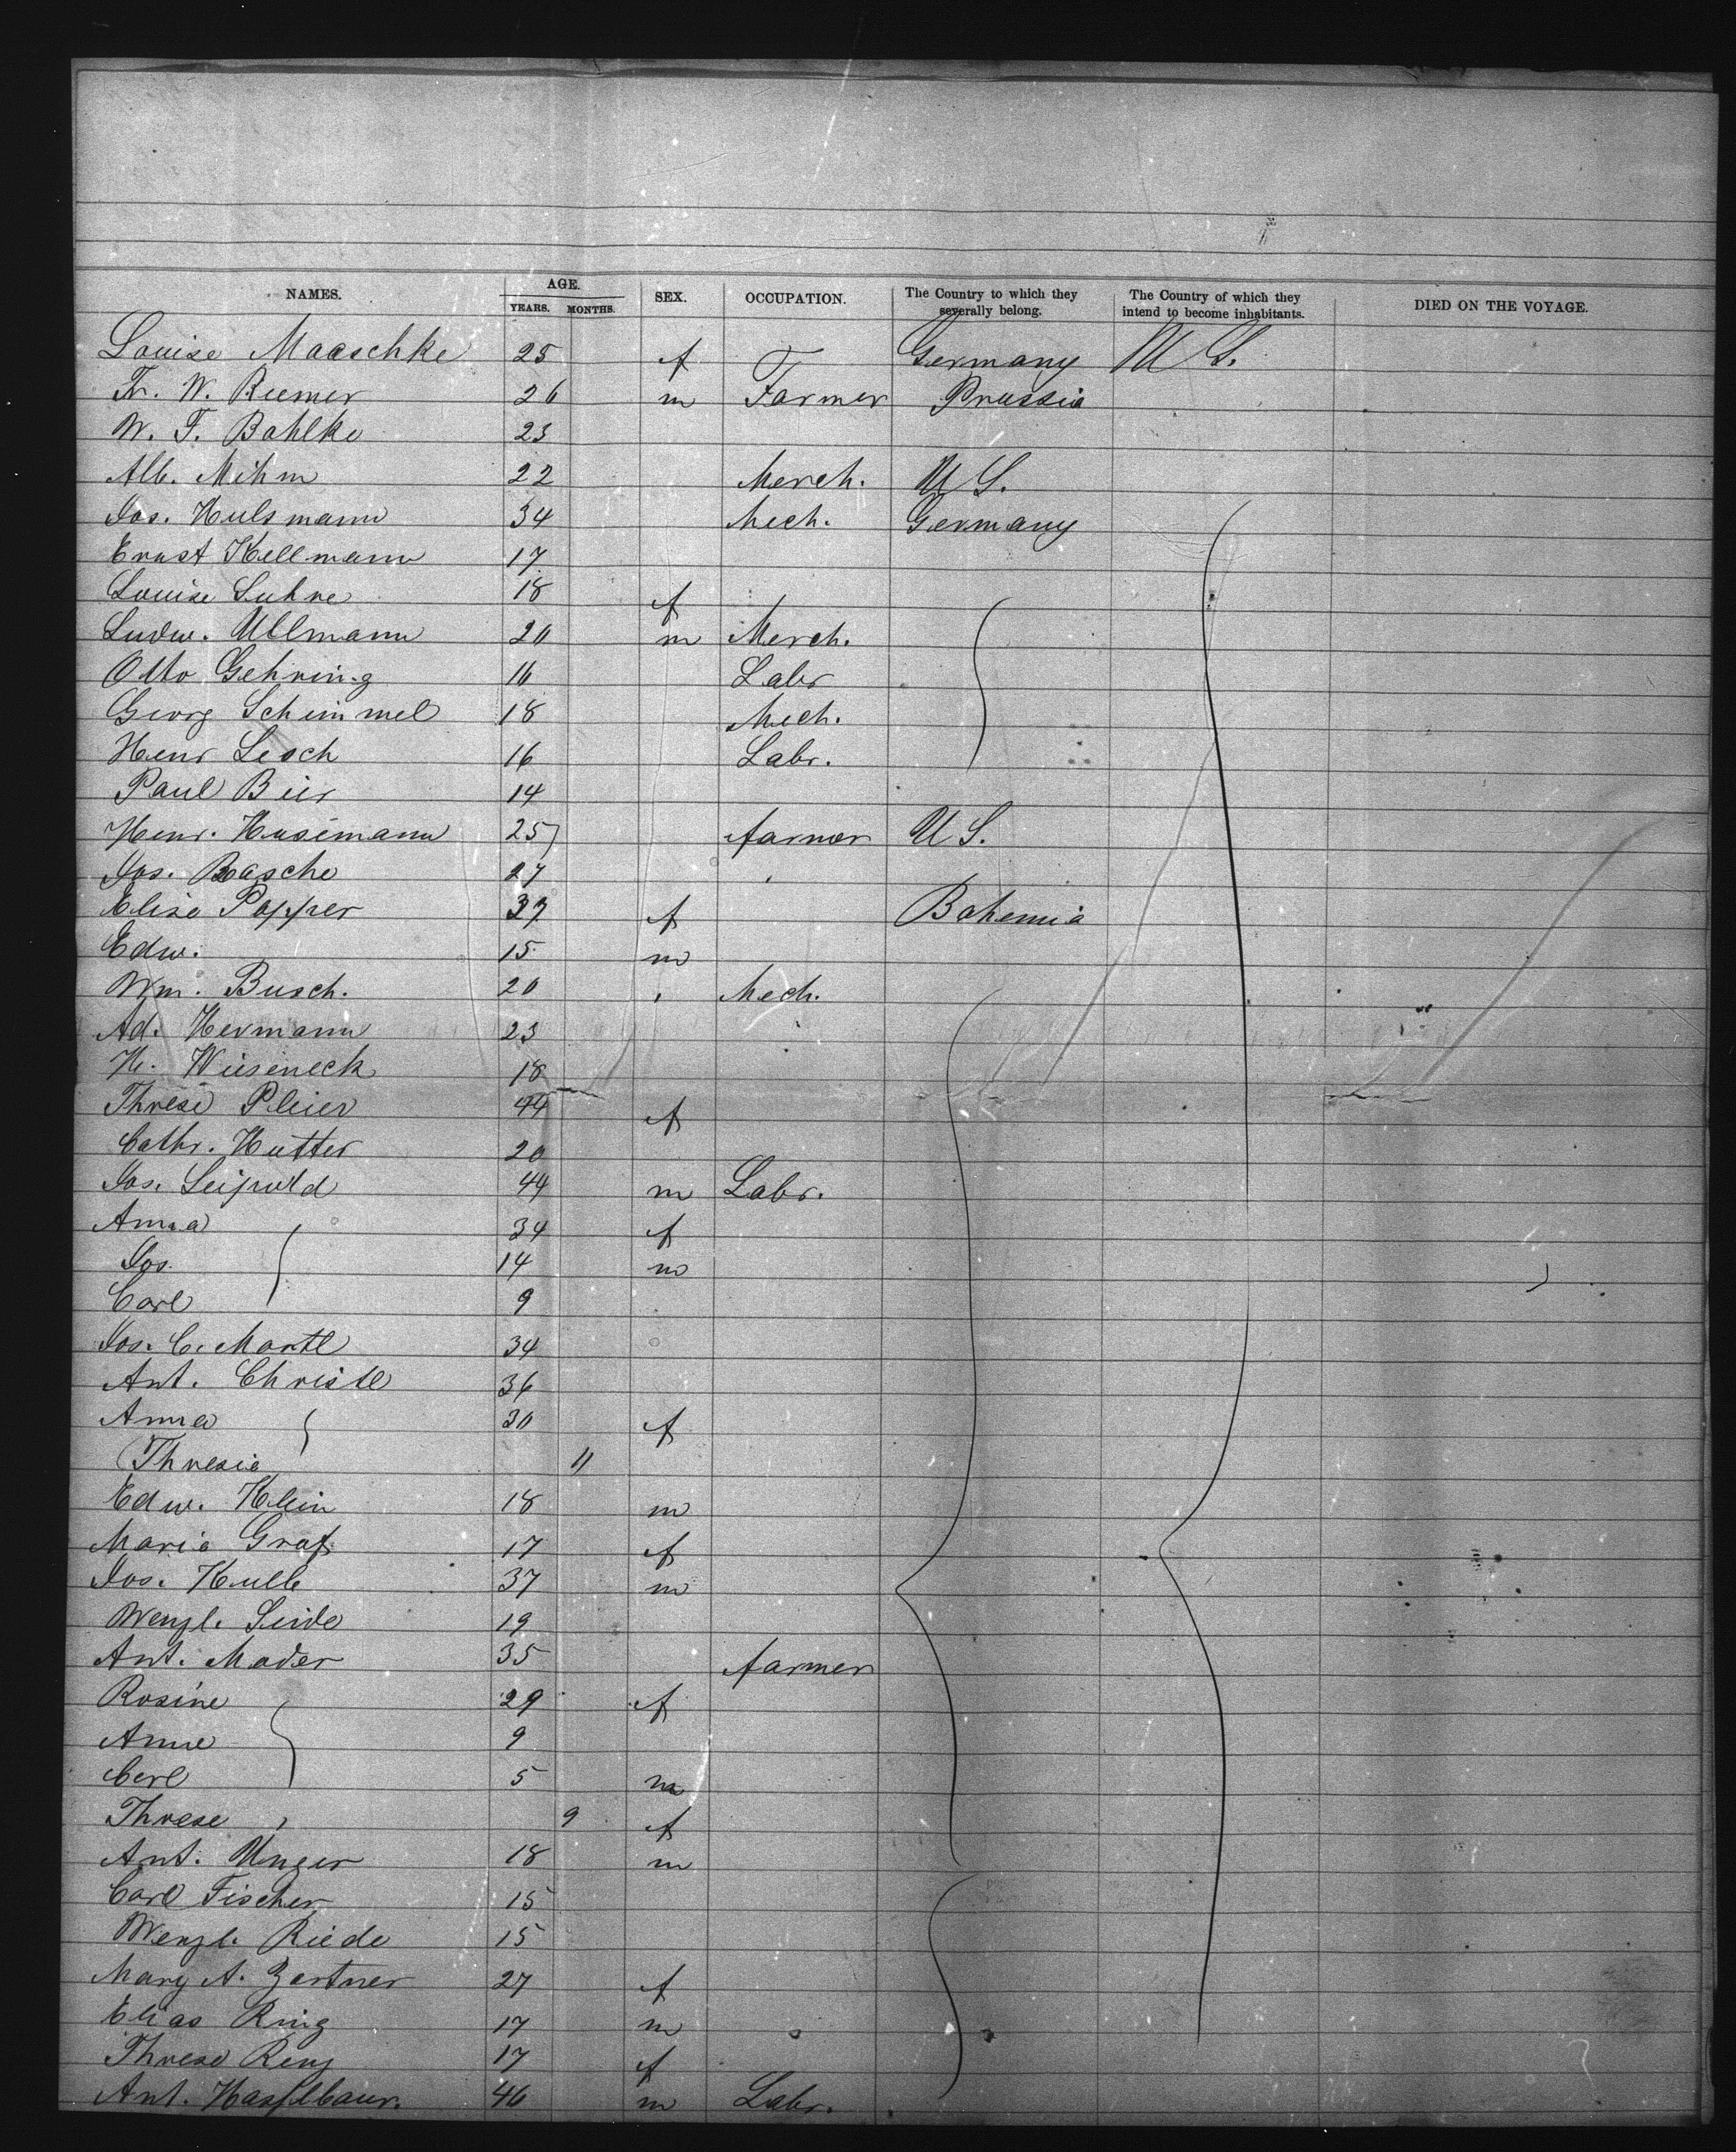 NAMES. AGE. YEARS. MONTHS. SEX. OCCUPATION. The Country to which they severally belong. The Country of which they intend to become inhabitants. DIED ON THE VOYAGE.
Louise Maaschke 25 f Germany U S.
Fr. W. Riemer 26 m Farmer Prussia
W. F. Bahlke 23
Alb. Mihm 22 Merch. U S.
Jos. Hulsmann 34 Mech. Germany
Ernst Kellmann 17
Louise Luhre 18 f
Ludw. Ullmann 20 m Merch.
Otto Gehring 16 Labr
Georg Schimmel 18 Mech.
Henr Lesch 16 Labr.
Paul Bier 14
Henr. Husemann 25 farmer U S.
Jos. Basche 27
Elise Popper 37 f Bohemia
Edw. 15 m
Wm. Busch. 20 Mech.
Ad. Hermann 23
H. Wieseneck 18
Threse Pleier 44 f
Cathr. Hutter 20
Jos. Leipold 44 m Labr.
Anna 34 f
Jos. 14 m
Carl 9
Jos. C. Martl 34
Ant. Christl 36
Anna 30 f
Thresia 11
Edw. Klein 18 m
Maria Graf 17 f
Jos. Kulb 37 m
Wenzl. 19
Ant. Mader 35 farmer
Rosine 29 f
Anne 9
Carl 5 m
Threse 9 f
Ant. Unger 18 m
Carl Fischer 15
Wenzl. Riede 15
Mary A. Zartner 27 f
Elias Ring 17 m
Threse 17 f
Ant. Hasslbaur. 40 m Labr.